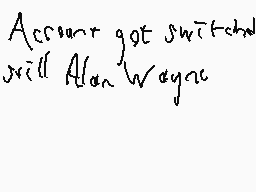 Account got switched
still Alan Wayne